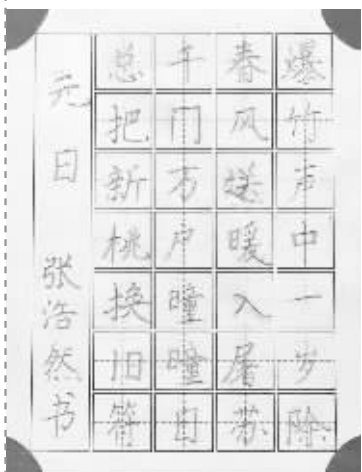 爆竹声中一岁除
春风送暖入屠苏
千门万户曈曈日
总把新桃换旧符
元日 张浩然书